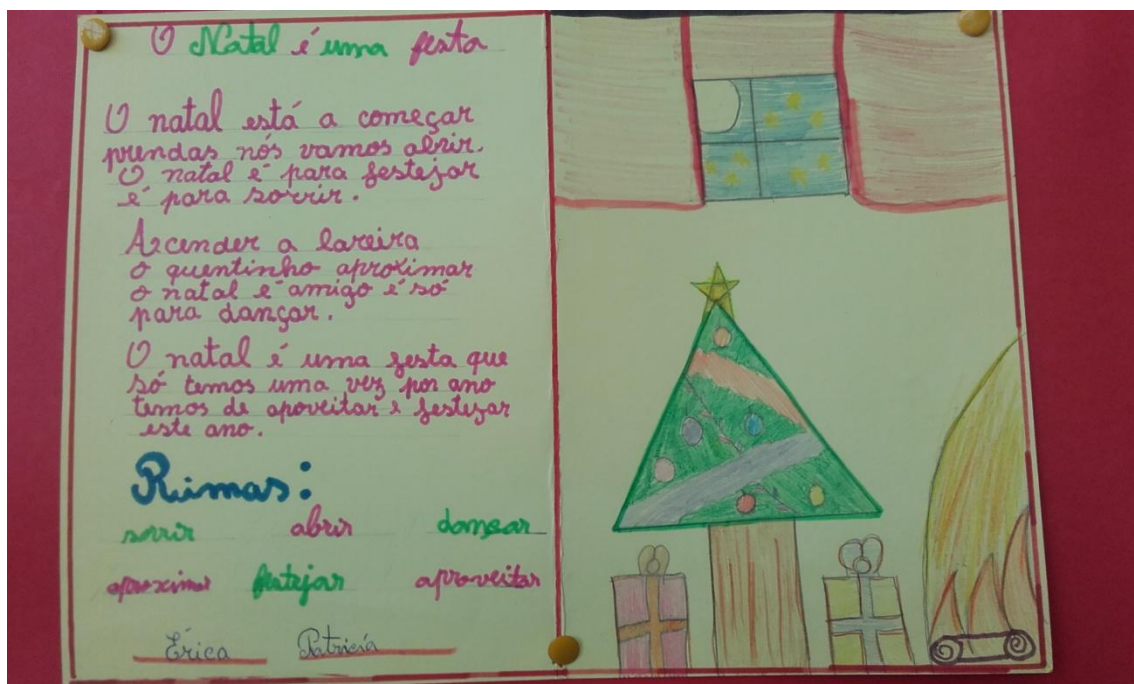 O Natal é uma festa
O natal está a começar
prendas nós vamos abrir.
O natal é para festejar
é para sorrir.
Ascender a lareira
o quentinho aproximar
o natal é amigo é só
para dançar.
O natal é uma festa que
só temos uma vez por ano
temos de apoveitar e festejar
este ano.
Rimas:
sorrir abrir dançar
aproximar festejar aproveitar
Érica Patricía